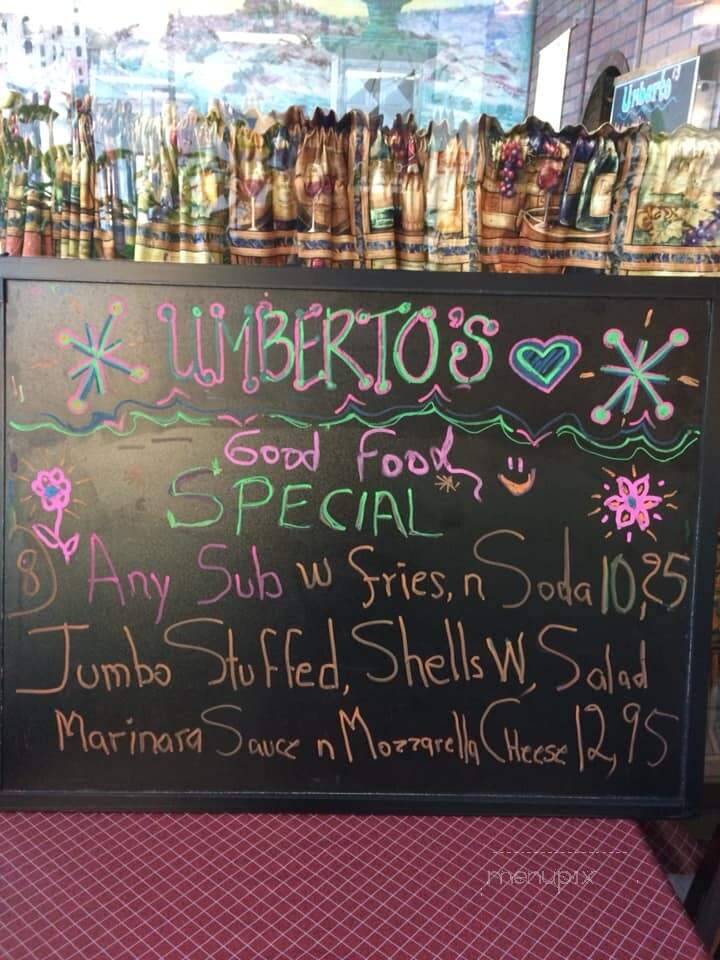 Umberto's
UMBERTO'S
Good Food
SPECIAL
8) Any Sub w fries, n Soda 10,25
Jumbo Stuffed, Shells W, Salad
Marinara Sauce n Mozzarella Cheese 12,95
menupix